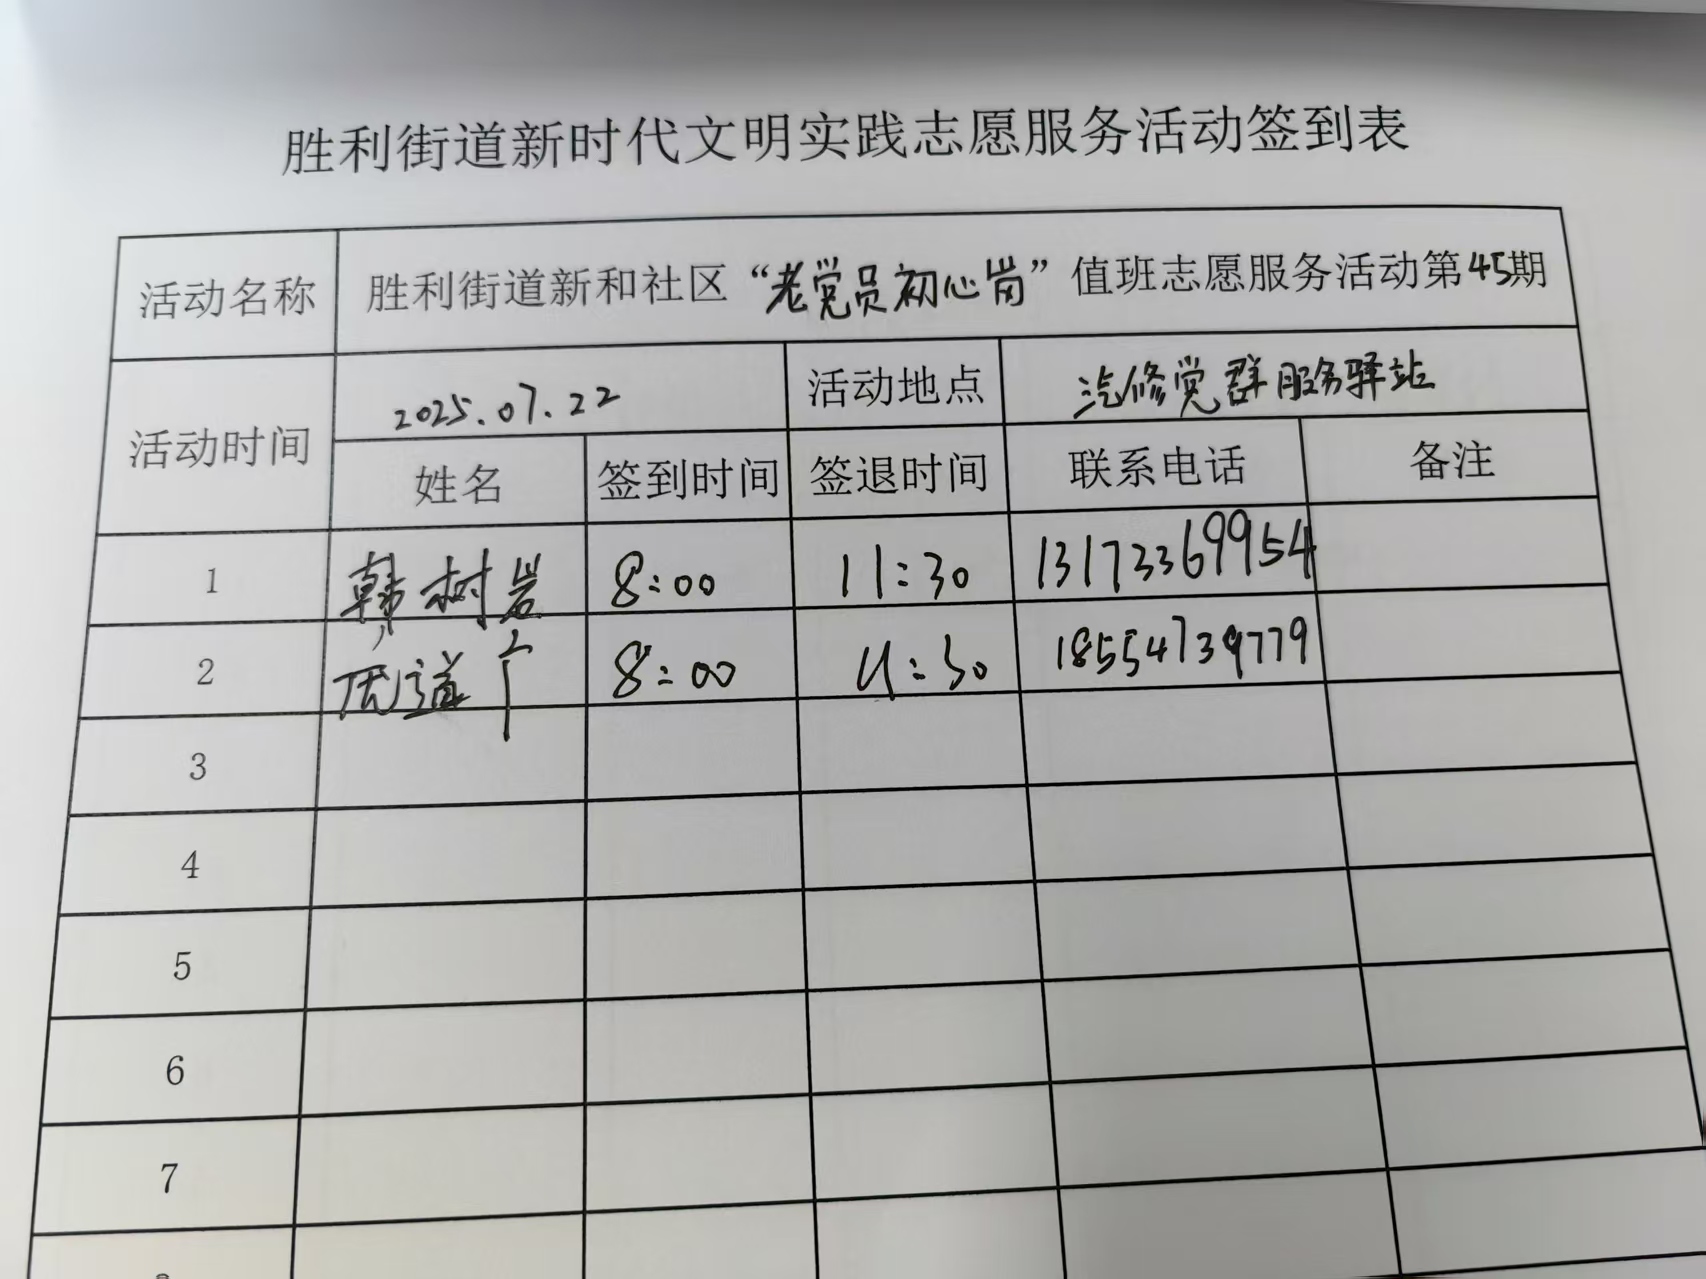 胜利街道新时代文明实践志愿服务活动签到表
活动名称 胜利街道新和社区“老党员初心岗”值班志愿服务活动第45期
活动时间 2025.07.22 活动地点 汽修党群服务驿站
姓名 签到时间 签退时间 联系电话 备注
1 韩树岩 8:00 11:30 13173369954
2 道广 8:00 11:30 18554739779
3
4
5
6
7